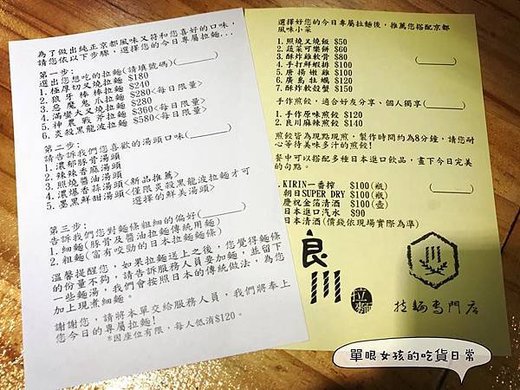 為了做出純正京都風味又符和您喜好的口味，
請您依以下步驟，選擇您的今日專屬拉麵…
第一步：
選出您想吃的拉麵(請填號碼)(      )
1.極厚切叉燒拉麵 $180
2.狼牙棒棒拉麵 $240
3.惡魔鳳爪拉麵 $280<每日限量>
4.滿蠻大叉燒拉麵 $280
5.神農戰斧拉麵 $360<每日限量>
6.炎殺黑龍波拉麵 $580<每日限量>
第二步：
請告訴我們您喜歡的湯頭口味(      )
1.濃郁豚骨湯頭
2.辣辣香麻湯頭
3.照燒醬油湯頭
4.濃爆香蒜湯頭<新品推薦>
5.墨黑鮮甜湯頭<僅限炎殺黑龍波拉麵才可
選擇的鮮美湯頭>
第三步：
告訴我們您對麵條粗細的偏好(      )
1.細麵(豚骨及醬油拉麵傳統用麵)
2.粗麵(富有咬勁的日本拉麵麵條)
溫馨提醒您，如果拉麵送上之後，您覺得麵條
的份量不夠，請告訴服務人員要加麵，並留下
一些麵湯，我們會按照日本的傳統做法，為您
加上現煮細麵。
謝謝您，請將本單交給服務人員，我們將奉上
您今日的專屬拉麵！
*因座位有限，每人低消$120。
選擇好您的今日專屬拉麵後，推薦您搭配京都
風味小菜
1.照燒叉燒飯 $50
2.蔬菜可樂餅 $60
3.酥炸雞軟骨 $80
4.手打鮮蝦排 $100
5.唐揚嫩雞 $100
6.廣島牡蠣 $120
7.酥炸軟殼蟹 $150
手作煎餃，適合好友分享，個人獨享(      )
1.手作原味煎餃 $120
2.良川麻辣煎餃 $140
煎餃皆為現點現煎，製作時間約為8分鐘，請您耐
心等待美味多汁的煎餃!
餐中可以搭配多種日本進口飲品，畫下今日完美
的句點。
.KIRIN一番搾 $100(瓶)
朝日SUPER DRY $100(瓶)
慶祝金箔清酒 $100(壺)
日本進口汽水 $90
日本清酒(價錢依現場實際為準)
良川
拉麵
拉麵專門店
單眼女孩的吃貨日常